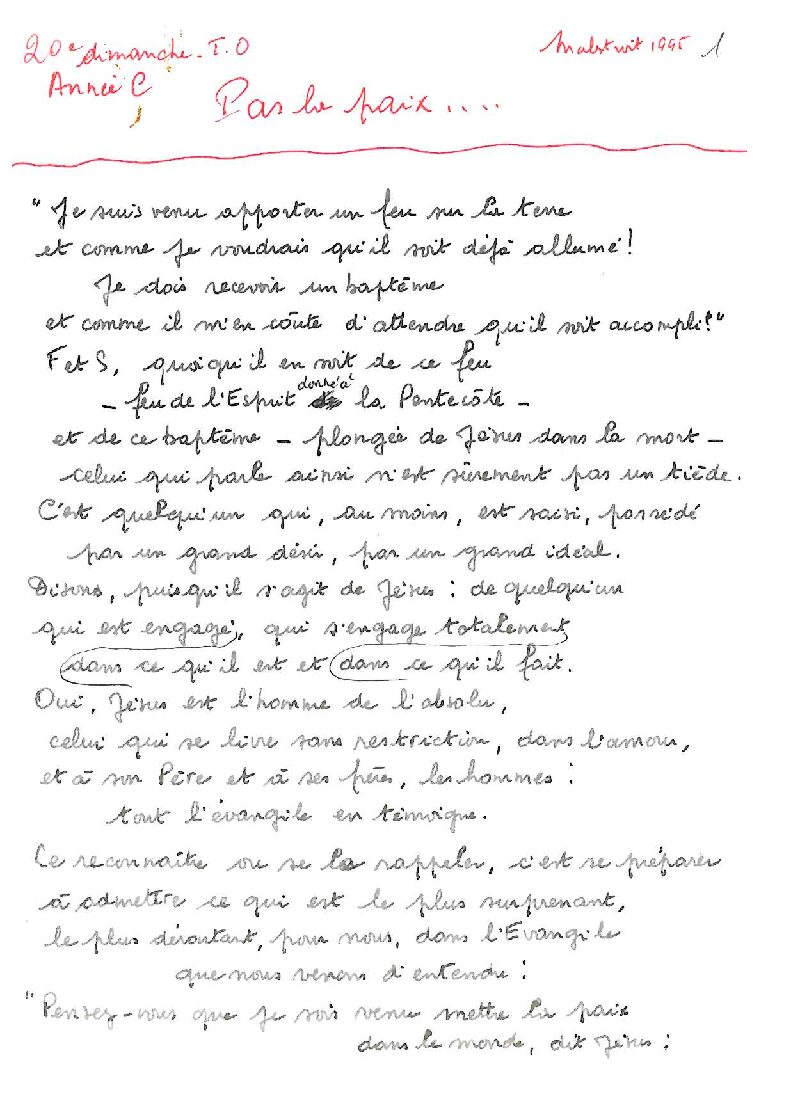 20e dimanche - T.O
Malestroit 1995 1
Année C
Pas la paix....
"Je suis venu apporter un feu sur la terre
et comme je voudrais qu'il soit déjà allumé!
Je dois recevoir un baptême
et comme il m'en coûte d'attendre qu'il soit accompli!"
F et S, quoiqu'il en soit de ce feu
- feu de l'Esprit donné à la Pentecôte -
et de ce baptême - plongée de Jésus dans la mort -
celui qui parle ainsi n'est sûrement pas un tiède.
C'est quelqu'un qui, au moins, est saisi, possédé
par un grand désir, par un grand idéal.
Disons, puisqu'il s'agit de Jésus : de quelqu'un
qui est engagé, qui s'engage totalement
dans ce qu'il est et dans ce qu'il fait.
Oui, Jésus est l'homme de l'absolu,
celui qui se livre sans restriction, dans l'amour,
et à son Père et à ses frères, les hommes :
tout l'évangile en témoigne.
Le reconnaître ou se le rappeler, c'est se préparer
à admettre ce qui est le plus surprenant,
le plus déroutant, pour nous, dans l'Evangile
que nous venons d'entendre :
"Pensez-vous que je sois venu mettre la paix
dans le monde, dit Jésus :